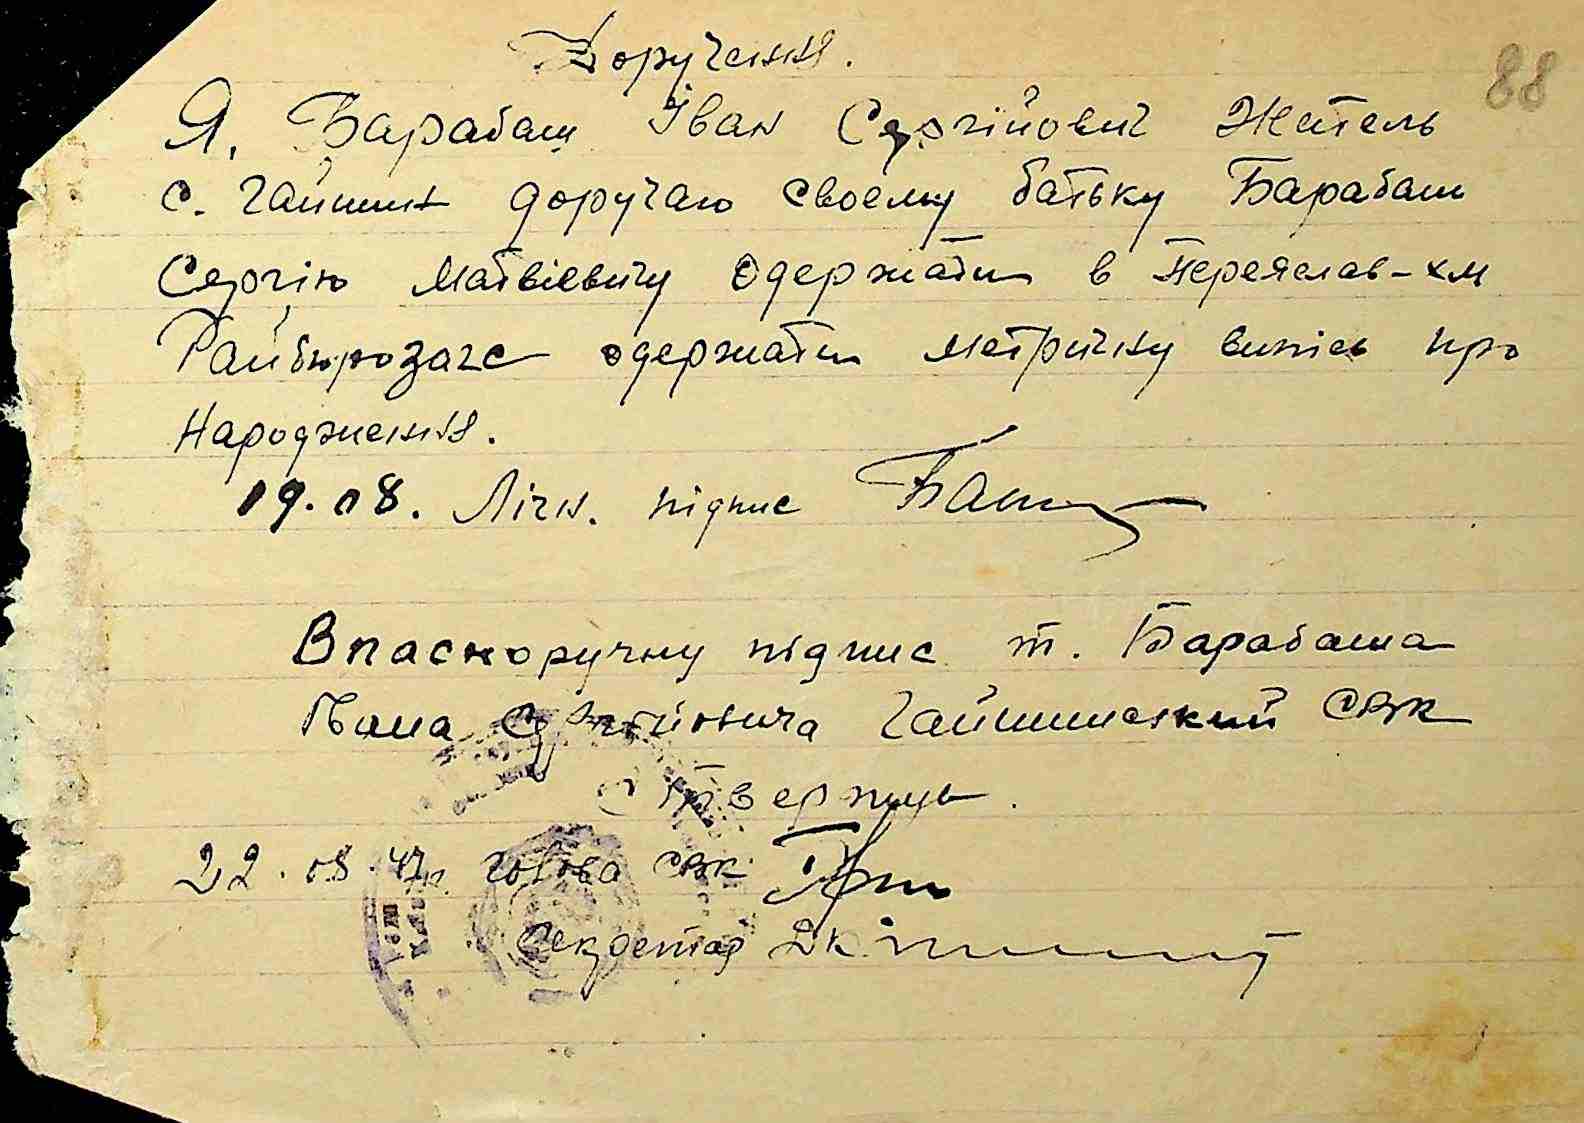 Доручення.
88
Я, Барабаш Іван Сергійович Житель
с. Гайшин доручаю своєму батьку Барабаш
Сергію Матвієвичу одержати в Переяслав-хм
Райбюрозагс одержати метричну випісь про
Народження.
19.08. Лічн. підпис
Власноручну підпис т. Барабаша
Івана Сергійовича Гайшинський СВК
Стверджує.
22.08.47р. голова СВК
Секретар